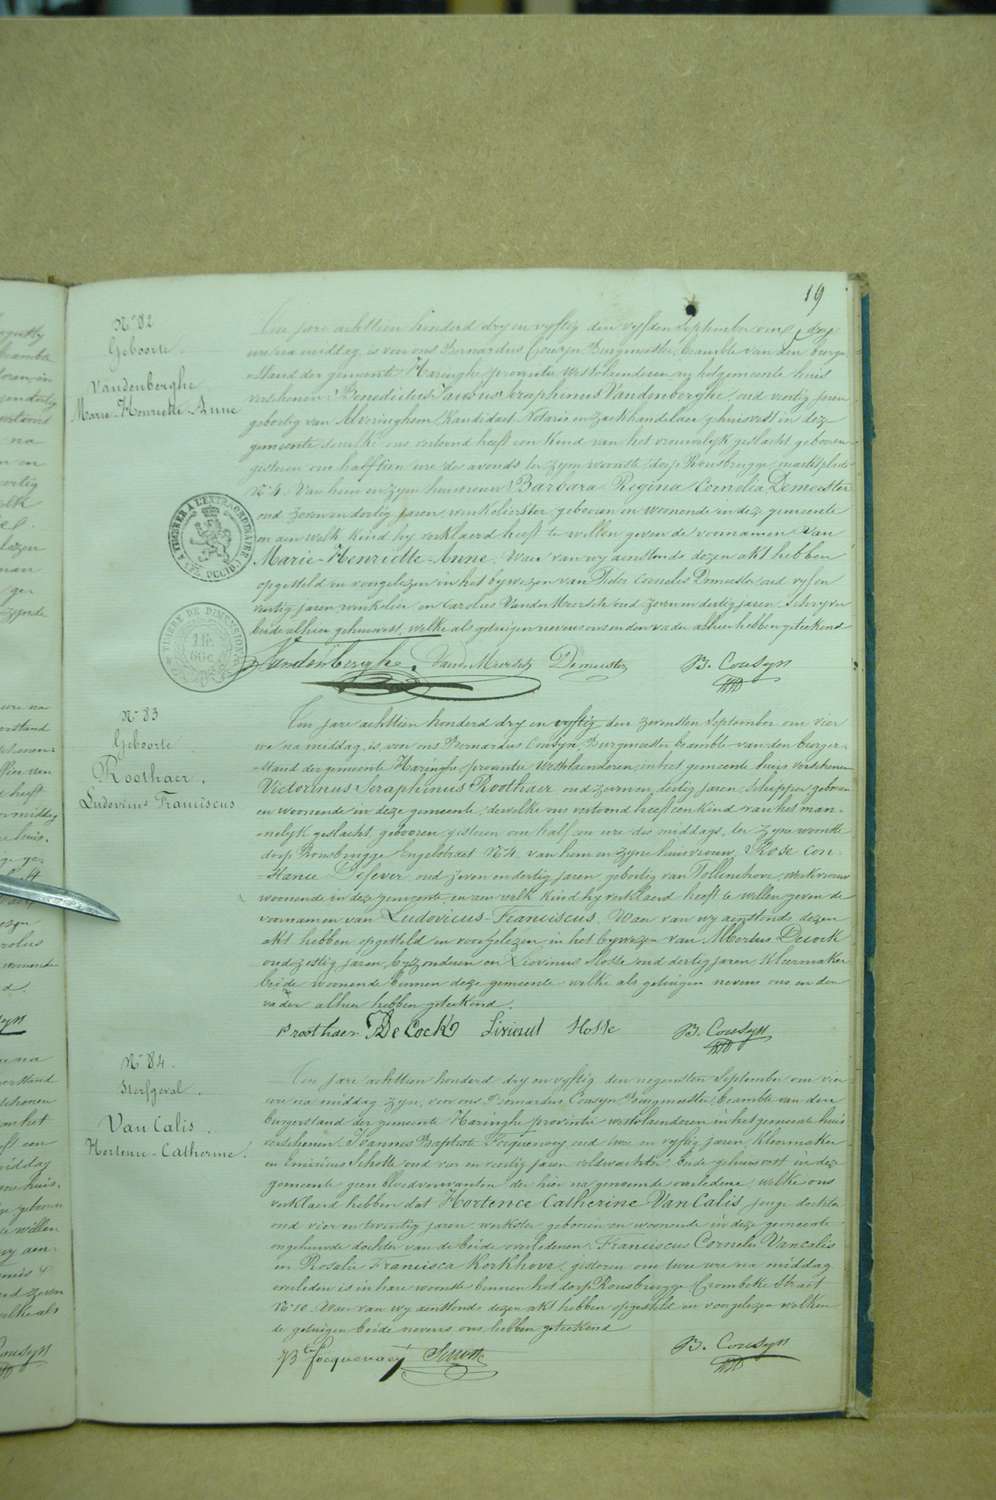 19
N° 82
Geboorte
Vandenberghe
Marie-Henriette-Anne
Ten jare achttien honderd dry en vyftig den vyfden September om dry
ure na middag, is voor ons Bernardus Cousyn Burgmeester, beamble van den burger
-stand der gemeente Haringhe provintie Westvlaenderen in het gemeente huis
verschenen Benedictus Seraphinus Vandenberghe, oud veertig jaren
geboortig van Alveringhem, Kandidaet Notaris en zaekhandelaer gehuisvest in deze
gemeente, dewelke ons vertoond heeft een Kind van het vrouwelyk geslacht, geboren
gisteren om half tien ure des avonds ter zyner woonste, dorp Rousbrugge, marktplaets
N° 4. Van hem en zyne huisvrouw Barbara Regina Cornelia Demeester
oud zeven en dertig jaren, winkelierster, geboren en woonende in deze gemeente
en aen welk Kind hy verklaerd heeft te willen geven de voornamen van
Marie-Henriette-Anne. Waer van wy aenstonds dezen akt hebben
opgesteld en voorgelezen in het bywezen van Pieter Cornelis Demeester oud vyf en
veertig jaren winkelier en Carolus Vander Meersch oud zeven en dertig jaren, Schryver
beide alhier gehuisvest, welke als getuigen nevens ons en den vader alhier hebben geteekend
TIMBRE A L'EXTRAORDINAIRE
FL. OCCID.
TIMBRE DE DIMENSION
Vandenberghe. Vander Meersch Demeester B. Cousyn
N° 83
Geboorte
Roothaer.
Ludovicus Franciscus
Ten jare achttien honderd dry en vyftig den zevensten September om vier
ure na middag, is voor ons Bernardus Cousyn Burgmeester beamble van den burger-
-stand der gemeente Haringhe, provintie Westvlaenderen, in het gemeente huis verschenen
Victorinus Seraphinus Roothaer oud zeven en dertig jaren, Schipper, geboren
en woonende in deze gemeente, dewelke ons vertoond heeft een Kind van het man-
-nelyk geslacht, geboren gisteren om half een ure des middags, ter zyne woonste
dorp Rousbrugge Engelstraet N° 4, van hem en zyne huisvrouw, Rose Con-
-stance Defever, oud zeven en dertig jaren, geboortig van Pollinchove, werkvrouw
woonende in deze gemeente, en aen welk Kind hy verklaerd heeft te willen geven de
voornamen van Ludovicus-Franciscus. Waer van wy aenstonds dezen
akt hebben opgesteld en voorgelezen in het bywezen van Albertus Decock
oud zestig jaren, byzonderen en Livinus Hosse oud dertig jaren, Kleermaker
beide woonende binnen deze gemeente welke als getuigen nevens ons en den
vader alhier hebben geteekend.
Roothaer DeCock Hosse B. Cousyn
N° 84.
Sterfgeval.
Van Calis.
Hortence-Catherine.
Ten jare achttien honderd dry en vyftig den negensten September om vier
ure na middag zyn voor ons Bernardus Cousyn Burgmeester, beamble van den
burgerstand der gemeente Haringhe provintie westvlaenderen in het gemeente huis
verschenen Joannes Baptiste Focquenoey oud twee en vyftig jaren, kleermaker
en Schotte oud vier en veertig jaren veldwachter, beide gehuisvest in deze
gemeente geen bloedverwanten der hier na genoemde overledene, welke ons
verklaerd hebben dat Hortence Catherine Van Calis, jonge dochter
oud vier en twintig jaren, werkster, geboren en woonende in deze gemeente
ongehuwde dochter van de beide overledenen Franciscus Cornelis Vancalis
en Rosalie Francisca Kerkhove, gisteren om twee ure na middag
overleden is in hare woonste binnen het dorp Rousbrugge Crombeke Straet
N° 10. Waer van wy aenstonds dezen akt hebben opgesteld en voorgelezen welken
de getuigen beide nevens ons hebben geteekend
B. Cousyn